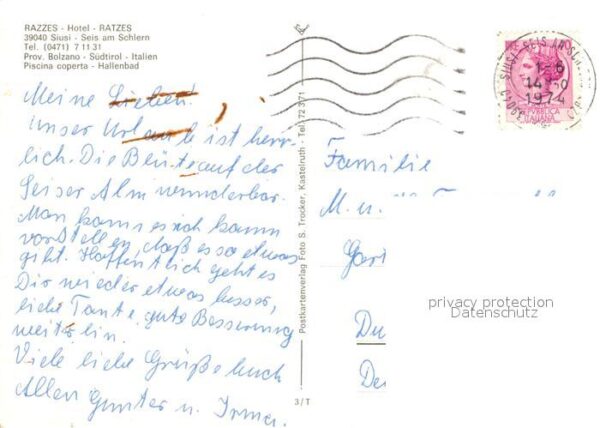 RAZZES - Hotel - RATZES
39040 Siusi - Seis am Schlern
Tel. (0471) 7 11 31
Prov. Bolzano - Südtirol - Italien
Piscina coperta - Hallenbad
Meine Lieben!
Unser Urlaub ist herr-
lich. Die Blüte auf der
Seiser Alm wunderbar.
Man kann es sich kaum
vorstellen, daß es so etwas
gibt. Hoffentlich geht es
Dir wieder etwas besser,
liebe Tante, gute Besserung
weiterhin.
Viele liebe Grüße Euch
Allen Gunter u. Irma.
Postkartenverlag Foto S. Trocker, Kastelruth - Tel. 72 3 71
3/T
39040 SIUSI - SEIS AM
1974
REPUBBLICA
ITALIANA
Familie
M. u.
Gart
Du
De
privacy protection
Datenschutz